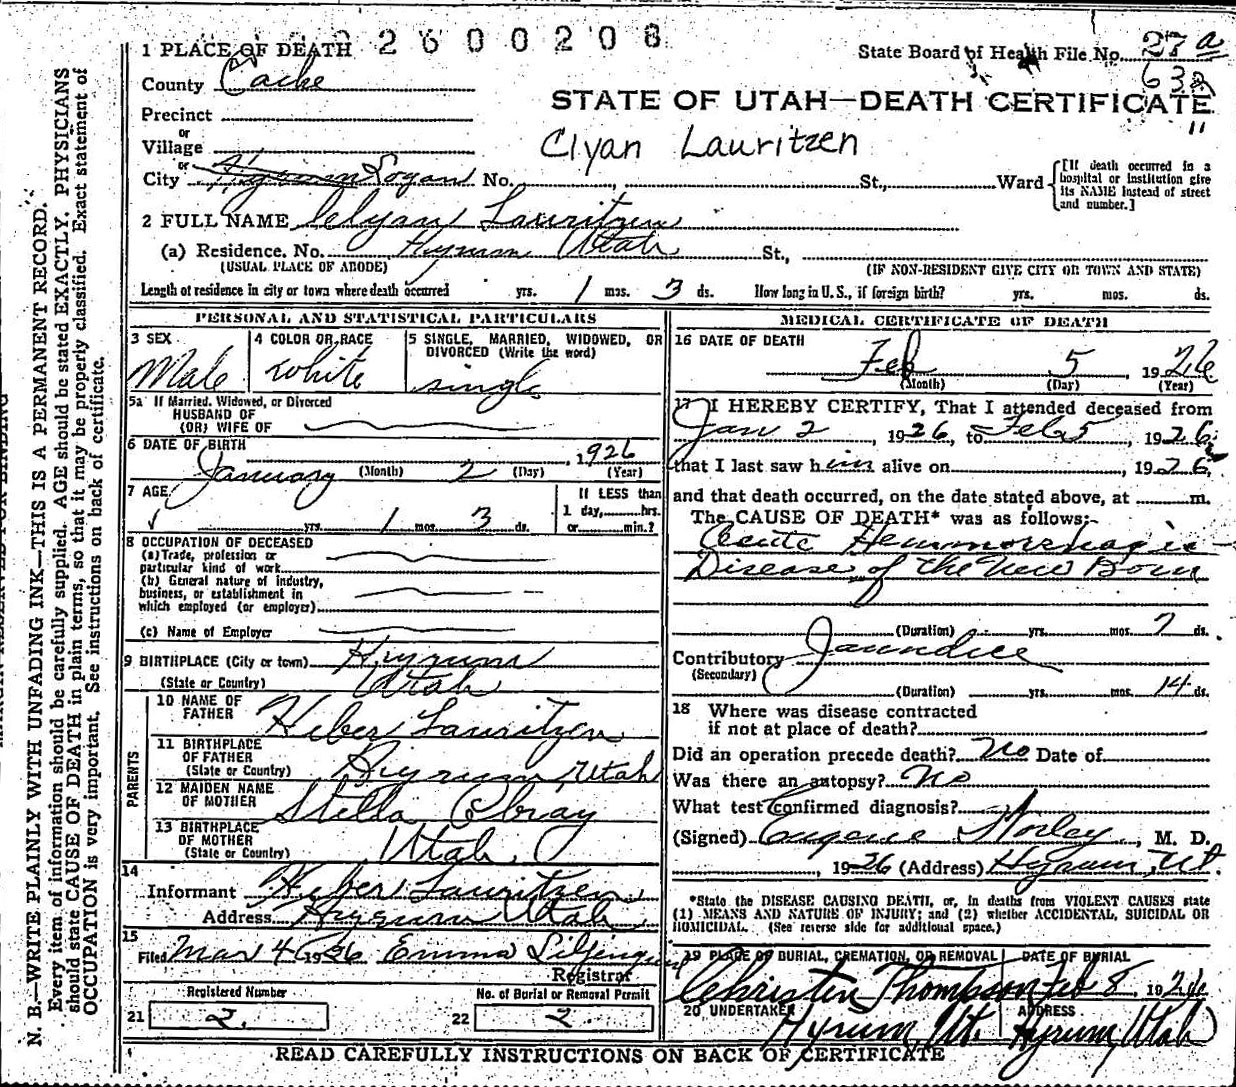 2600208
1 PLACE OF DEATH
State Board of Health File No. 27 a
County Cache
632
STATE OF UTAH—DEATH CERTIFICATE
Precinct
or
Village
Clyan Lauritzen
or
City Hyrum Logan No. , St., Ward
[If death occurred in a hospital or institution give its NAME instead of street and number.]
2 FULL NAME Clyan Lauritzen
(a) Residence. No. Hyrum Utah St.,
(USUAL PLACE OF ABODE) (IF NON-RESIDENT GIVE CITY OR TOWN AND STATE)
Length of residence in city or town where death occurred yrs. 1 mos. 3 ds. How long in U. S., if foreign birth? yrs. mos. ds.
PERSONAL AND STATISTICAL PARTICULARS
3 SEX Male
4 COLOR OR RACE white
5 SINGLE, MARRIED, WIDOWED, OR DIVORCED (Write the word) single
5a If Married, Widowed, or Divorced
HUSBAND OF
(OR) WIFE OF
6 DATE OF BIRTH
January 2, 1926
(Month) (Day) (Year)
7 AGE
yrs. 1 mos. 3 ds.
If LESS than
1 day, hrs.
or min.?
8 OCCUPATION OF DECEASED
(a) Trade, profession or
particular kind of work
(b) General nature of industry,
business, or establishment in
which employed (or employer)
(c) Name of Employer
9 BIRTHPLACE (City or town) Hyrum
(State or Country) Utah
PARENTS
10 NAME OF
FATHER Heber Lauritzen
11 BIRTHPLACE
OF FATHER
(State or Country) Hyrum, Utah
12 MAIDEN NAME
OF MOTHER Stella Obray
13 BIRTHPLACE
OF MOTHER
(State or Country) Utah
14
Informant Heber Lauritzen
Address Hyrum Utah
15
Filed Mar 4 1926 Emma
Registrar
Registered Number
No. of Burial or Removal Permit
21 2.
22 2
MEDICAL CERTIFICATE OF DEATH
16 DATE OF DEATH
Feb 5 1926
(Month) (Day) (Year)
17 I HEREBY CERTIFY, That I attended deceased from
Jan 2, 1926, to Feb 5, 1926,
that I last saw him alive on , 1926,
and that death occurred, on the date stated above, at m.
The CAUSE OF DEATH* was as follows:
Acute Hemmorehagic
Disease of the New Born
(Duration) yrs. mos. 7 ds.
Contributory Jaundice
(Secondary)
(Duration) yrs. mos. 14 ds.
18 Where was disease contracted
if not at place of death?
Did an operation precede death? No Date of
Was there an autopsy? No
What test confirmed diagnosis?
(Signed) Eugene Worley, M. D.
, 1926 (Address) Hyrum, Ut.
*State the DISEASE CAUSING DEATH, or, in deaths from VIOLENT CAUSES state
(1) MEANS AND NATURE OF INJURY; and (2) whether ACCIDENTAL, SUICIDAL OR
HOMICIDAL. (See reverse side for additional space.)
19 PLACE OF BURIAL, CREMATION, OR REMOVAL
DATE OF BURIAL
Christen Thompson Feb 8, 1926
20 UNDERTAKER
ADDRESS
Hyrum, Ut. Hyrum, Utah
READ CAREFULLY INSTRUCTIONS ON BACK OF CERTIFICATE
N. B.—WRITE PLAINLY WITH UNFADING INK—THIS IS A PERMANENT RECORD.
Every item of information should be carefully supplied. AGE should be stated EXACTLY. PHYSICIANS
should state CAUSE OF DEATH in plain terms, so that it may be properly classified. Exact statement of
OCCUPATION is very important. See instructions on back of certificate.